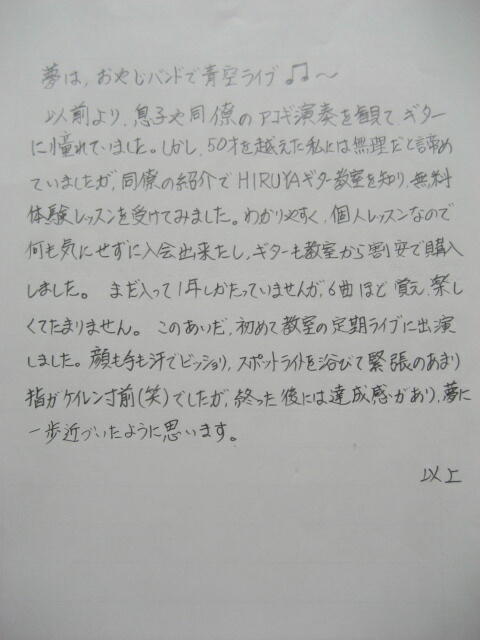 夢は、おやじバンドで青空ライブ♫〜
以前より、息子や同僚のアコギ演奏を観て、ギター
に憧れていました。しかし、50才を越えた私には無理だと諦め
ていましたが、同僚の紹介でHIRUYAギター教室を知り、無料
体験レッスンを受けてみました。わかりやすく、個人レッスンなので
何も気にせずに入会出来たし、ギターも教室から割安で購入
しました。 まだ入って1年しかたっていませんが、6曲ほど覚え、楽し
くてたまりません。 このあいだ、初めて教室の定期ライブに出演
しました。顔も手も汗でビッショリ、スポットライトを浴びて緊張のあまり
指がケイレン寸前(笑)でしたが、終った後には達成感があり、夢に
一歩近づいたように思います。
以上